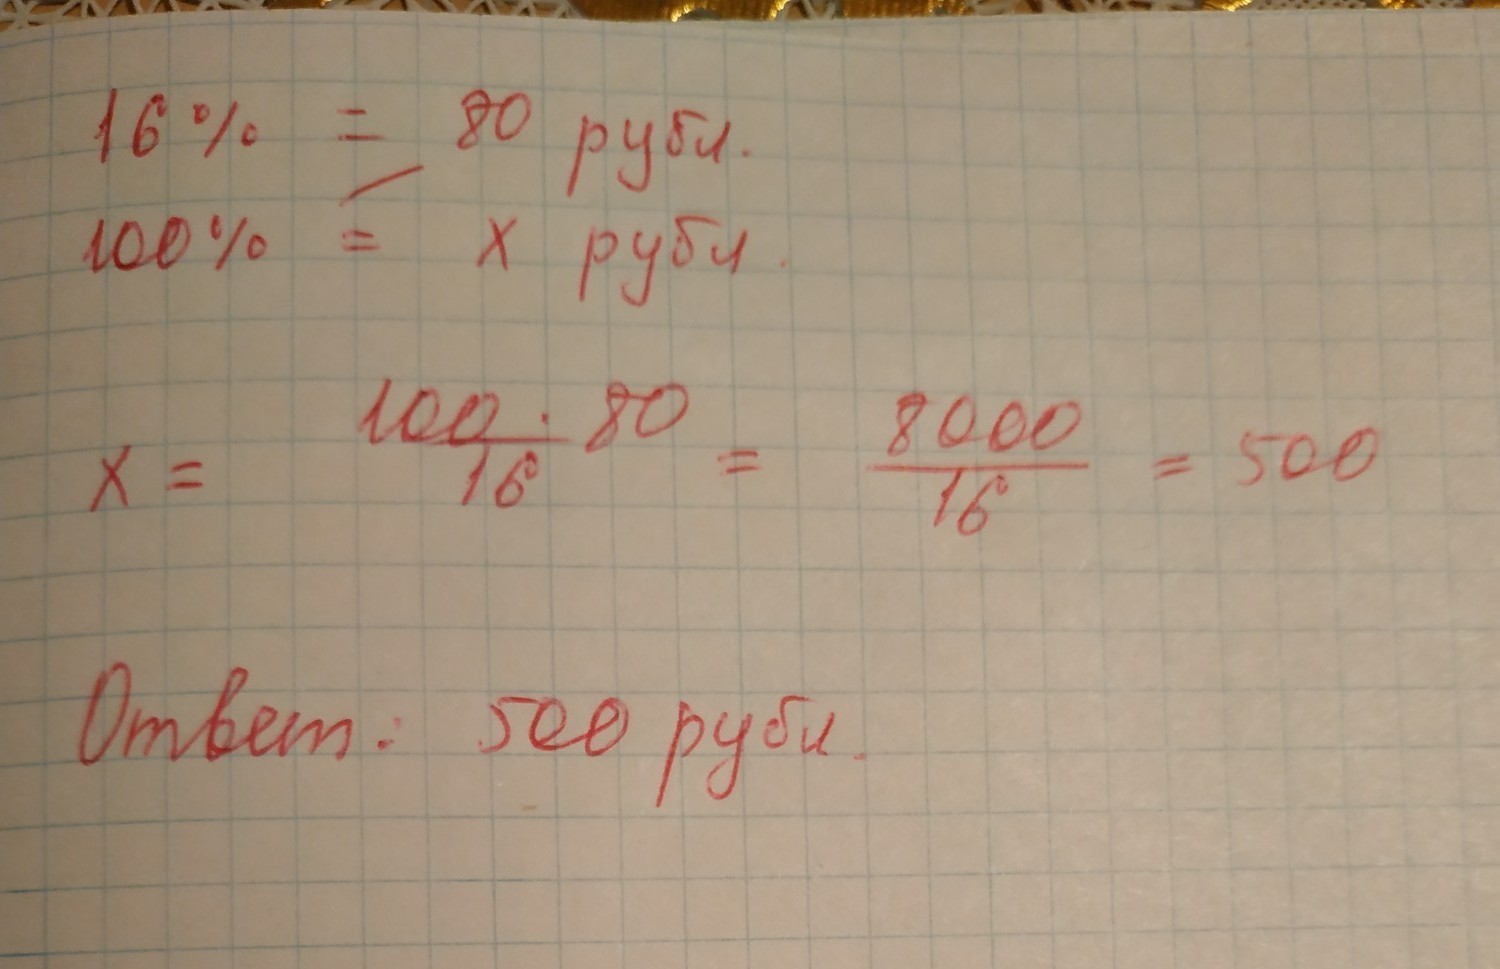 16% = 80 рубл.
100% = x рубл.
x = 100 · 80 / 16 = 8000 / 16 = 500
Ответ: 500 рубл.